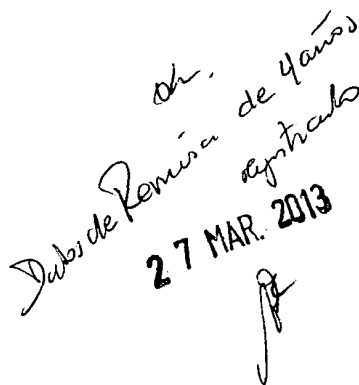 ok.
Datos de Remisa de 4 años,
registrado
27 MAR. 2013